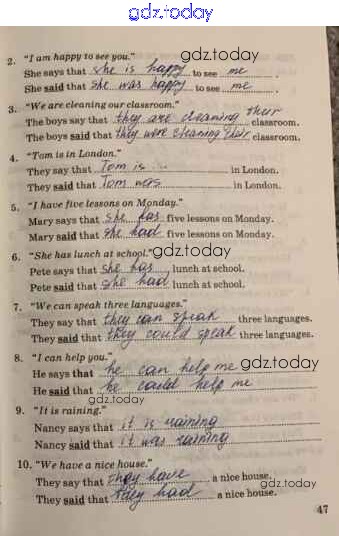 gdz.today
2. "I am happy to see you." gdz.today
She says that she is happy to see me.
She said that she was happy to see me.
3. "We are cleaning our classroom."
The boys say that they are cleaning their classroom.
The boys said that they were cleaning their classroom.
4. "Tom is in London."
They say that Tom is ... in London.
They said that Tom was in London.
5. "I have five lessons on Monday."
Mary says that she has five lessons on Monday.
Mary said that she had five lessons on Monday.
6. "She has lunch at school." gdz.today
Pete says that she has lunch at school.
Pete said that she had lunch at school.
7. "We can speak three languages."
They say that they can speak three languages.
They said that they could speak three languages.
8. "I can help you."
He says that he can help me gdz.today
He said that he could help me
9. "It is raining."
Nancy says that it is raining
Nancy said that it was raining
10. "We have a nice house."
They say that they have a nice house.
They said that they had a nice house.
gdz.today
47
gdz.today